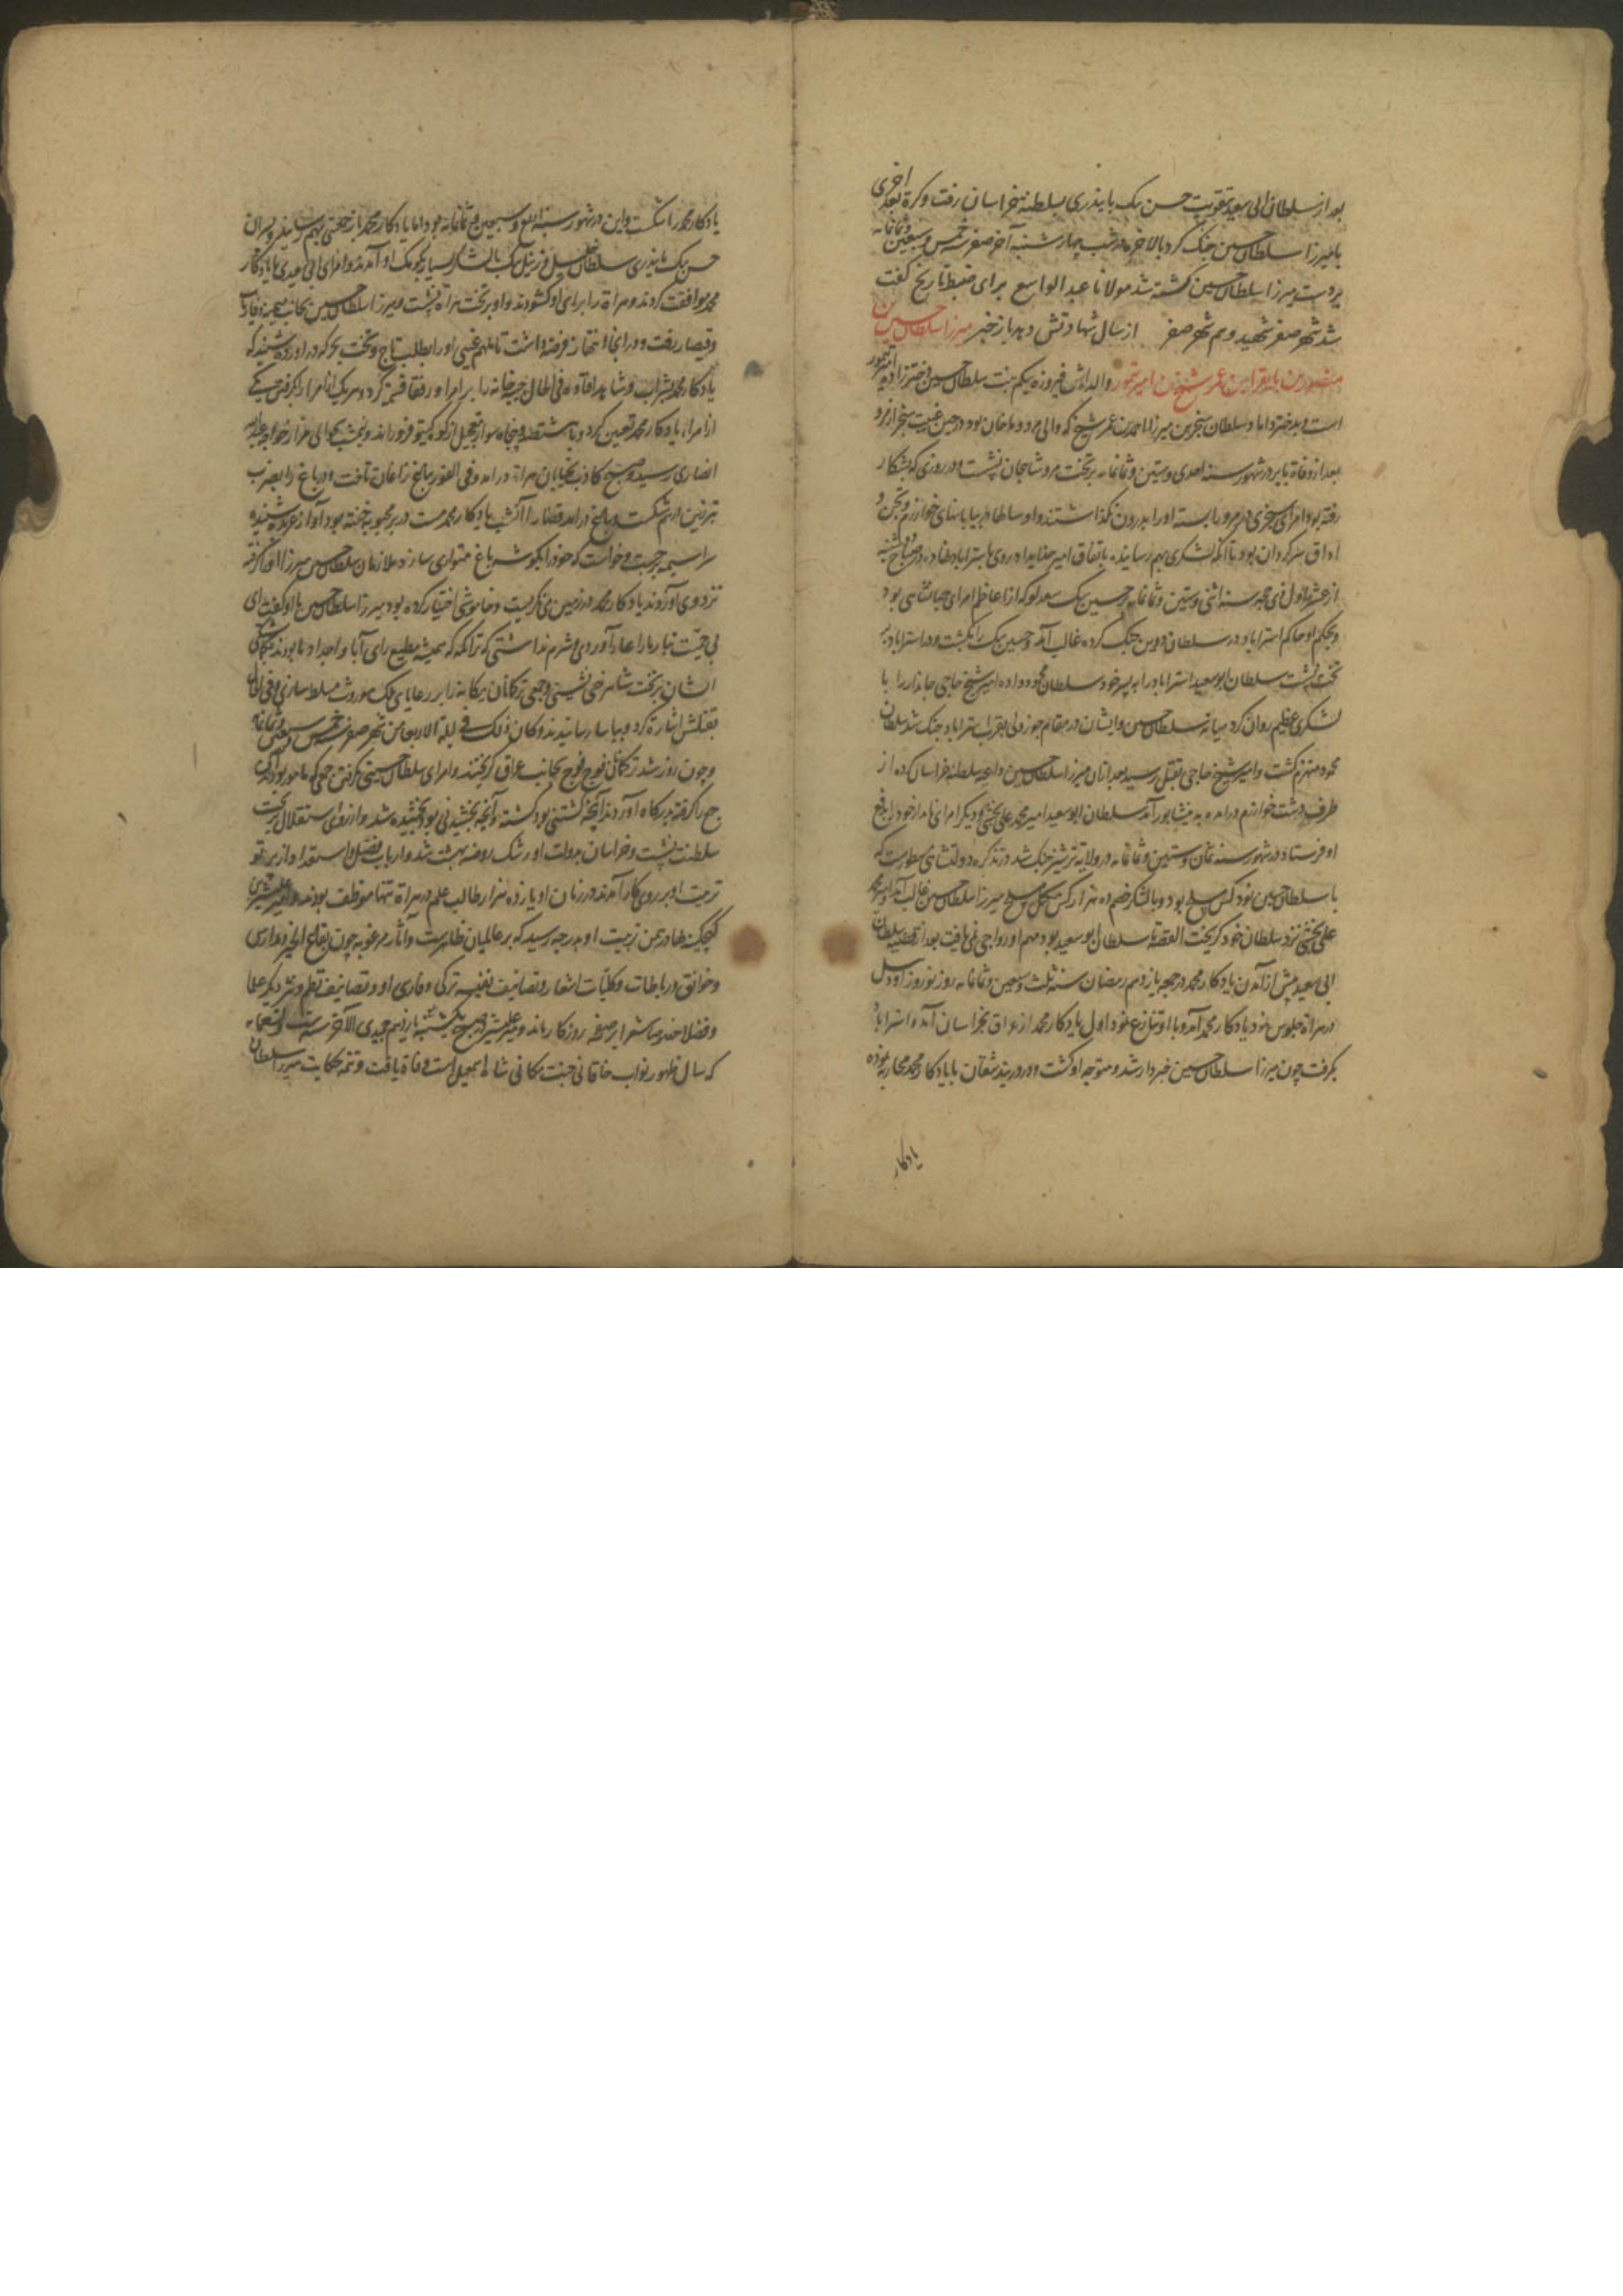 بعد از سلطان ابی سعید بتقویت حسن بیک بایندری بسلطنة خراسان رفت و کرة بعد اخری
با میرزا سلطان حسین جنک کرد بالاخره در شب چهارشنبه آخر صفر خمس و سبعین و ثمانمایه
بر دست میرزا سلطان حسین کشته شد مولانا عبد الواسع برای ضبط تاریخ گفت
شد شهر صفر شهید و هم شهر صفر از سال شهادتش دهد باز خبر میرزا سلطان حسین بن
منصور بن بایقرا بن عمر شیخ بن امیر تیمور والده‌اش فیروزه بیکم بنت سلطان حسین دختر زاده امیر تیمور
است و بدختر داماد سلطان سنجر بن میرزا احمد بن عمر شیخ که والی مرو و ماخان بود در حین غیبت سنجر از مرو
بعد از وفاة بابر در شهور سنه احدی و ستین و ثمانمایه بر تخت مرو شاهجان نشست و در روزی که بشکار
رفته بود امرای سنجری در مرو را بسته او را بدرون نکذاشتند و او سالها در بیابانهای خوارزم و تجن و
اداق سرکردان بود تا آنکه لشکری بهم رسانیده باتفاق امیر خدایداد روی باستراباد نهاده در صباح شنبه
از عشر اول ذی حجه سنه اثنی و ستین و ثمانمایه بر حسین بیک سعدلو که از اعاظم امرای جهانشاهی بود
و بحکم او حاکم استراباد در سلطان دوین جنک کرده غالب آمد و حسین بیک را بکشت و در استراباد بر
تخت نشست سلطان ابوسعید استراباد را به پسر خود سلطان محمود داده امیر شیخ حاجی جاندار را با
لشکری عظیم روان کرد میانه سلطان حسین و ایشان در مقام جوز ولی بقرب استراباد جنک شد سلطان
محمود منهزم کشت و امیر شیخ حاجی بقتل رسید بعد از آن میرزا سلطان حسین داعیه سلطنة خراسان کرده از
طرف دشت خوارزم درآمده به نیشابور آمد سلطان ابوسعید امیر محمد علی بخشی و دیکر امرای نامدار خود را بدفع
او فرستاد در شهور سنه ثمان و ستین و ثمانمایه در ولایة ترشیز جنک شد در تذکره دولتشاهی مسطورست که
با سلطان حسین نود کس مسلح بود و با لشکر خصم ده هزار کس مکمل مسلح میرزا سلطان حسین غالب آمد و امیر محمد
علی بخشی نزد سلطان خود کریخت القصه تا سلطان ابوسعید بود مهم او رواجی نمی یافت بعد از قضیه سلطان
ابی سعید پیش از آمدن یادکار محمد در جمعه یازدهم رمضان سنه ثلث و سبعین و ثمانمایه روز نوروز اودئیل
در هراة جلوس نمود یادکار محمد آمد و با او تنازع نمود اول یادکار محمد از عراق بخراسان آمد و استراباد
بکرفت چون میرزا سلطان حسین خبردار شد و متوجه او کشت و در دربند شقان با یادکار محمد محاربه نموده
یادکار
یادکار محمد را شکست و این در شهور سنه اربع و سبعین و ثمانمایه بود اما یادکار محمد باز جمعی بهم رسانید و پسران
حسن بیک بایندری سلطان خلیل و زینل بیک با لشکر بسیار بکومک او آمدند و امرای ابی سعیدی با یادکار
محمد موافقت کردند و هراة را برای او کشودند و او بر تخت هراة نشست و میرزا سلطان حسین بجانب میمنه و فاریاب
و قیصار رفت و در آنجا انتهاز فرصة داشت تا ملهم غیبی او را بطلب تاج و تخت بحرکت درآورد شنید که
یادکار محمد بشراب و شاهد افتاده فی الحال جیبه خانه را بر امرا و رفقا قسمة کرد و هر یک از امرا را بکرفتن یکی
از امراء یادکار محمد تعیین کرد و با هشتصد و پنجاه سوار بتعجیل از کوه کیتو فرود راند و نیمشب بحوالی مزار خواجه عبدالله
انصاری رسید و صبح کاذب بخیابان هراة درآمد و فی الفور بباغ زاغان تاخت و در باغ را بضرب
تبرزین از هم شکست و بباغ درآمد قضا را آن شب یادکار محمد مست در بر محبوبه خفته بود آواز عربده شنیده
سراسیمه برجست و خواست که خود را بکوشه باغ متواری سازد ملازمان سلطان حسین میرزا او را کرفته
نزد وی آوردند یادکار محمد در زمین می نکریست و خاموشی اختیار کرده بود میرزا سلطان حسین با او گفت ای
بی حمیت تبار ما را عار آوردی و شرم نداشتی که تراکمه که همیشه مطیع رای آبا و اجداد ما بودند بمکان
ایشان بر تخت شاهرخی نشستی و جمعی ترکمانان بیکانه را بر رعایای ملک موروث مسلط سازی و فی الحال
بقتلش اشارة کرد و بیاسا رسانیدند و کان ذلک فی لیلة الاربعا من شهر صفر خمس و سبعین و ثمانمایه
و چون روز شد ترکمانان فوج فوج بجانب عراق کریختند و امرای سلطان حسینی بکرفتن جمعی که مامور بودند یکی
جمع را کرفته بدرکاه آوردند آنچه کشتنی بود کشته و آنچه بخشیدنی بود بخشیده شد و از روی استقلال بر تخت
سلطنت نشست و خراسان بدولت او رشک روضه بهشت شد و ارباب فضل و استعداد از پرتو
تربیت او بر روی کار آمدند در زمان او یازده هزار طالب علم در هراة تنها موظف بودند و امیر علیشیر
کیچکنه بهادر بمن تربیت او بدرجه رسید که بر عالمیان ظاهرست و آثار مرغوبه چون بقاع الخیر و مدارس
و خوانق و رباطات و کلیات اشعار و تصانیف نفیسه ترکی و فارسی او و تصانیف نظم و نثر دیکر علما
و فضلا خصوصا شعرا بر صفحه روزکار ماند و میر علیشیر در صبح یکشنبه یازدهم جمیدی الآخر سنه ست و تسعمایه
که سال ظهور نواب خاقانی جنت مکانی شاه اسمعیل است وفاة یافت و تتمه حکایت میرزا سلطان